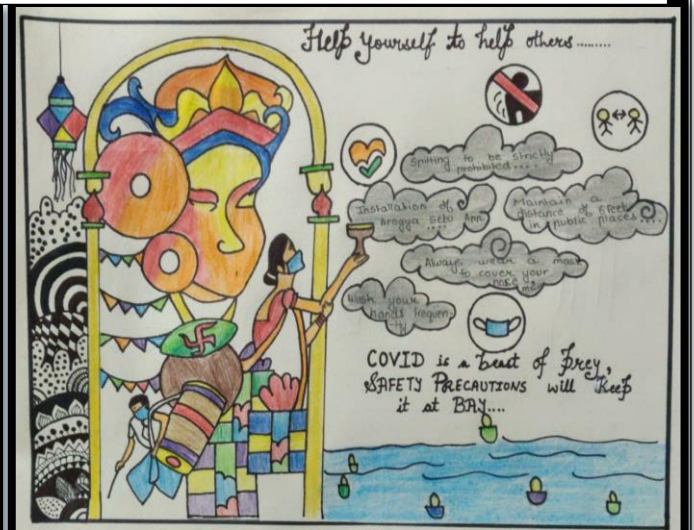 Help yourself to help others.........
Spitting to be strictly
prohibited....
Installation of
Arogya Setu App
....
Maintain a
distance of 6 feet
in public places....
Always wear a mask
to cover your
nose &
Wash your
hands frequen-
tly
COVID is a beast of prey,
SAFETY PRECAUTIONS will keep
it at BAY....